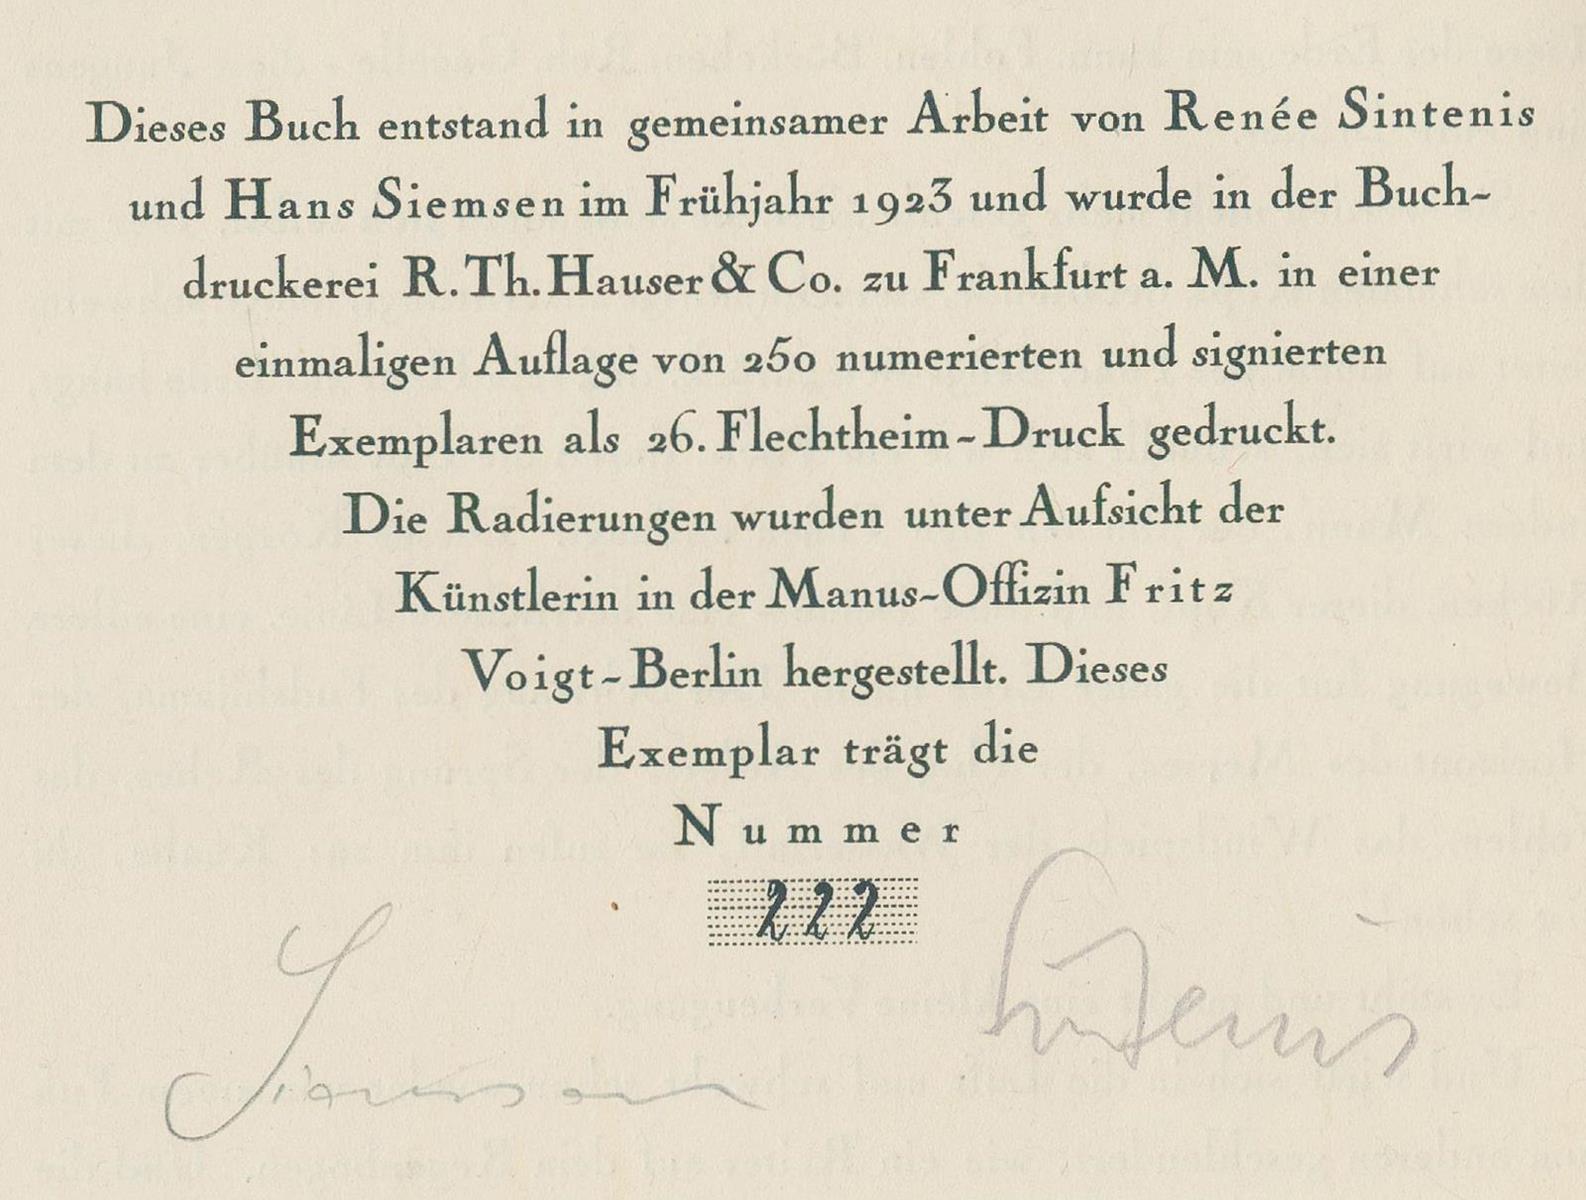 Dieses Buch entstand in gemeinsamer Arbeit von Renée Sintenis
und Hans Siemsen im Frühjahr 1923 und wurde in der Buch-
druckerei R. Th. Hauser & Co. zu Frankfurt a. M. in einer
einmaligen Auflage von 250 numerierten und signierten
Exemplaren als 26. Flechtheim-Druck gedruckt.
Die Radierungen wurden unter Aufsicht der
Künstlerin in der Manus-Offizin Fritz
Voigt-Berlin hergestellt. Dieses
Exemplar trägt die
Nummer
222
Siemsen
Sintenis